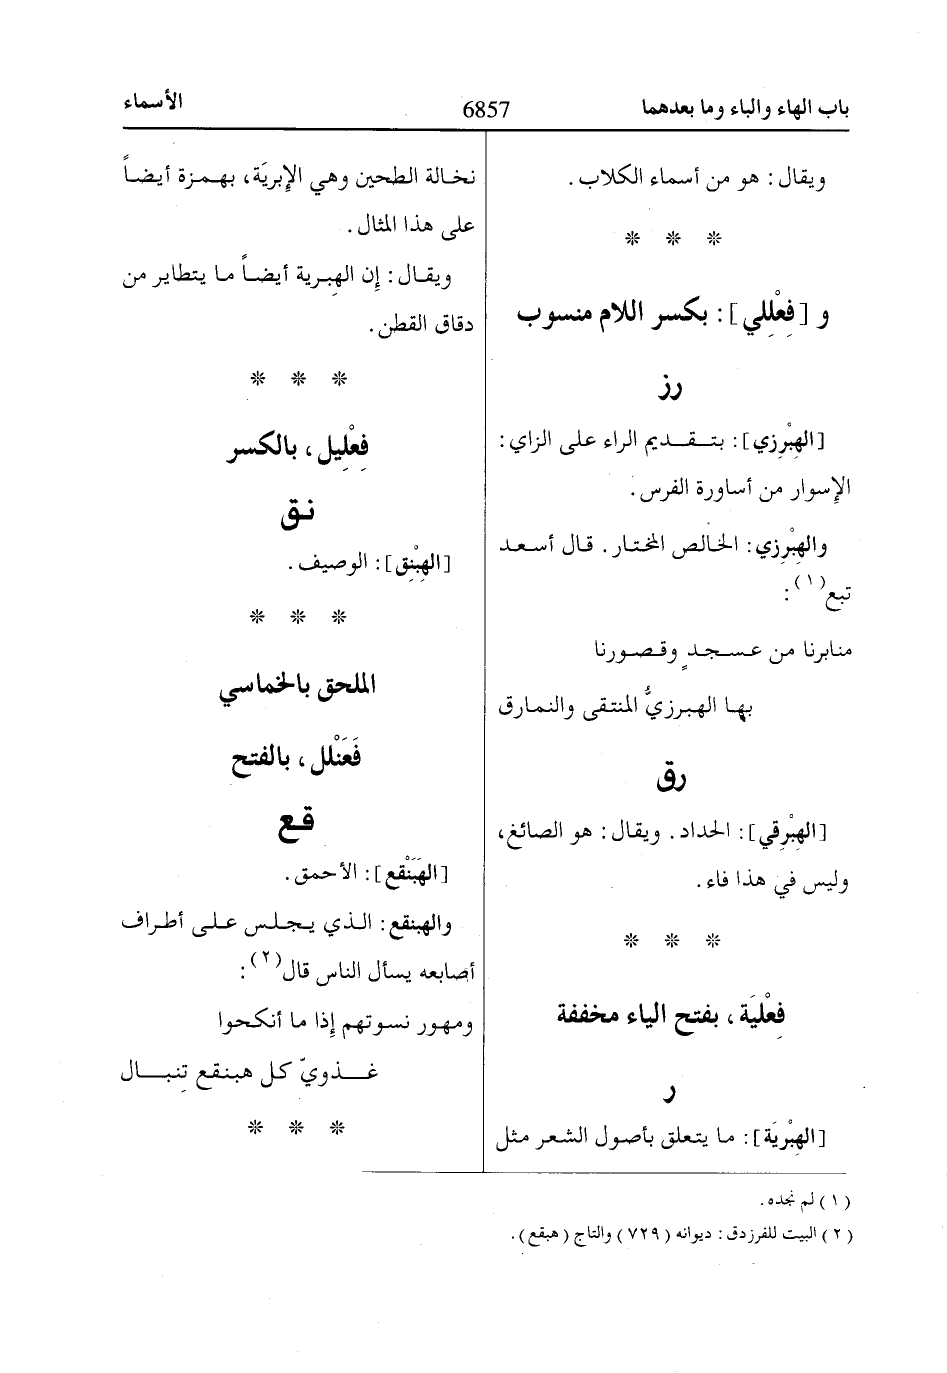 باب الهاء والباء وما بعدهما 6857 الأسماء
ويقال: هو من أسماء الكلاب.
* * *
و [فِعْلِلي]: بكسر اللام منسوب
رز
[الهِبْرِزي]: بتقديم الراء على الزاي:
الإسوار من أساورة الفرس.
والهِبْرِزي: الخالص المختار. قال أسعد
تبع(١):
منابرنا من عسجدٍ وقصورنا
بها الهبرزيُّ المنتقى والنمارق
رق
[الهِبْرِقي]: الحداد. ويقال: هو الصائغ،
وليس في هذا فاء.
* * *
فِعْلِيَة، بفتح الياء مخففة
ر
[الهِبْرِيَة]: ما يتعلق بأصول الشعر مثل
نخالة الطحين وهي الإبريَة، بهمزة أيضاً
على هذا المثال.
ويقال: إن الهِبرية أيضاً ما يتطاير من
دقاق القطن.
* * *
فِعْلِيل، بالكسر
نق
[الهِبْنِق]: الوصيف.
* * *
الملحق بالخماسي
فَعَنْلل، بالفتح
قع
[الهَبَنْقع]: الأحمق.
والهبنقع: الذي يجلس على أطراف
أصابعه يسأل الناس قال(٢):
ومهور نسوتهم إذا ما أنكحوا
غذويّ كل هبنقع تِنبال
* * *
(١) لم نجده.
(٢) البيت للفرزدق: ديوانه (٧٢٩) والتاج (هبقع).